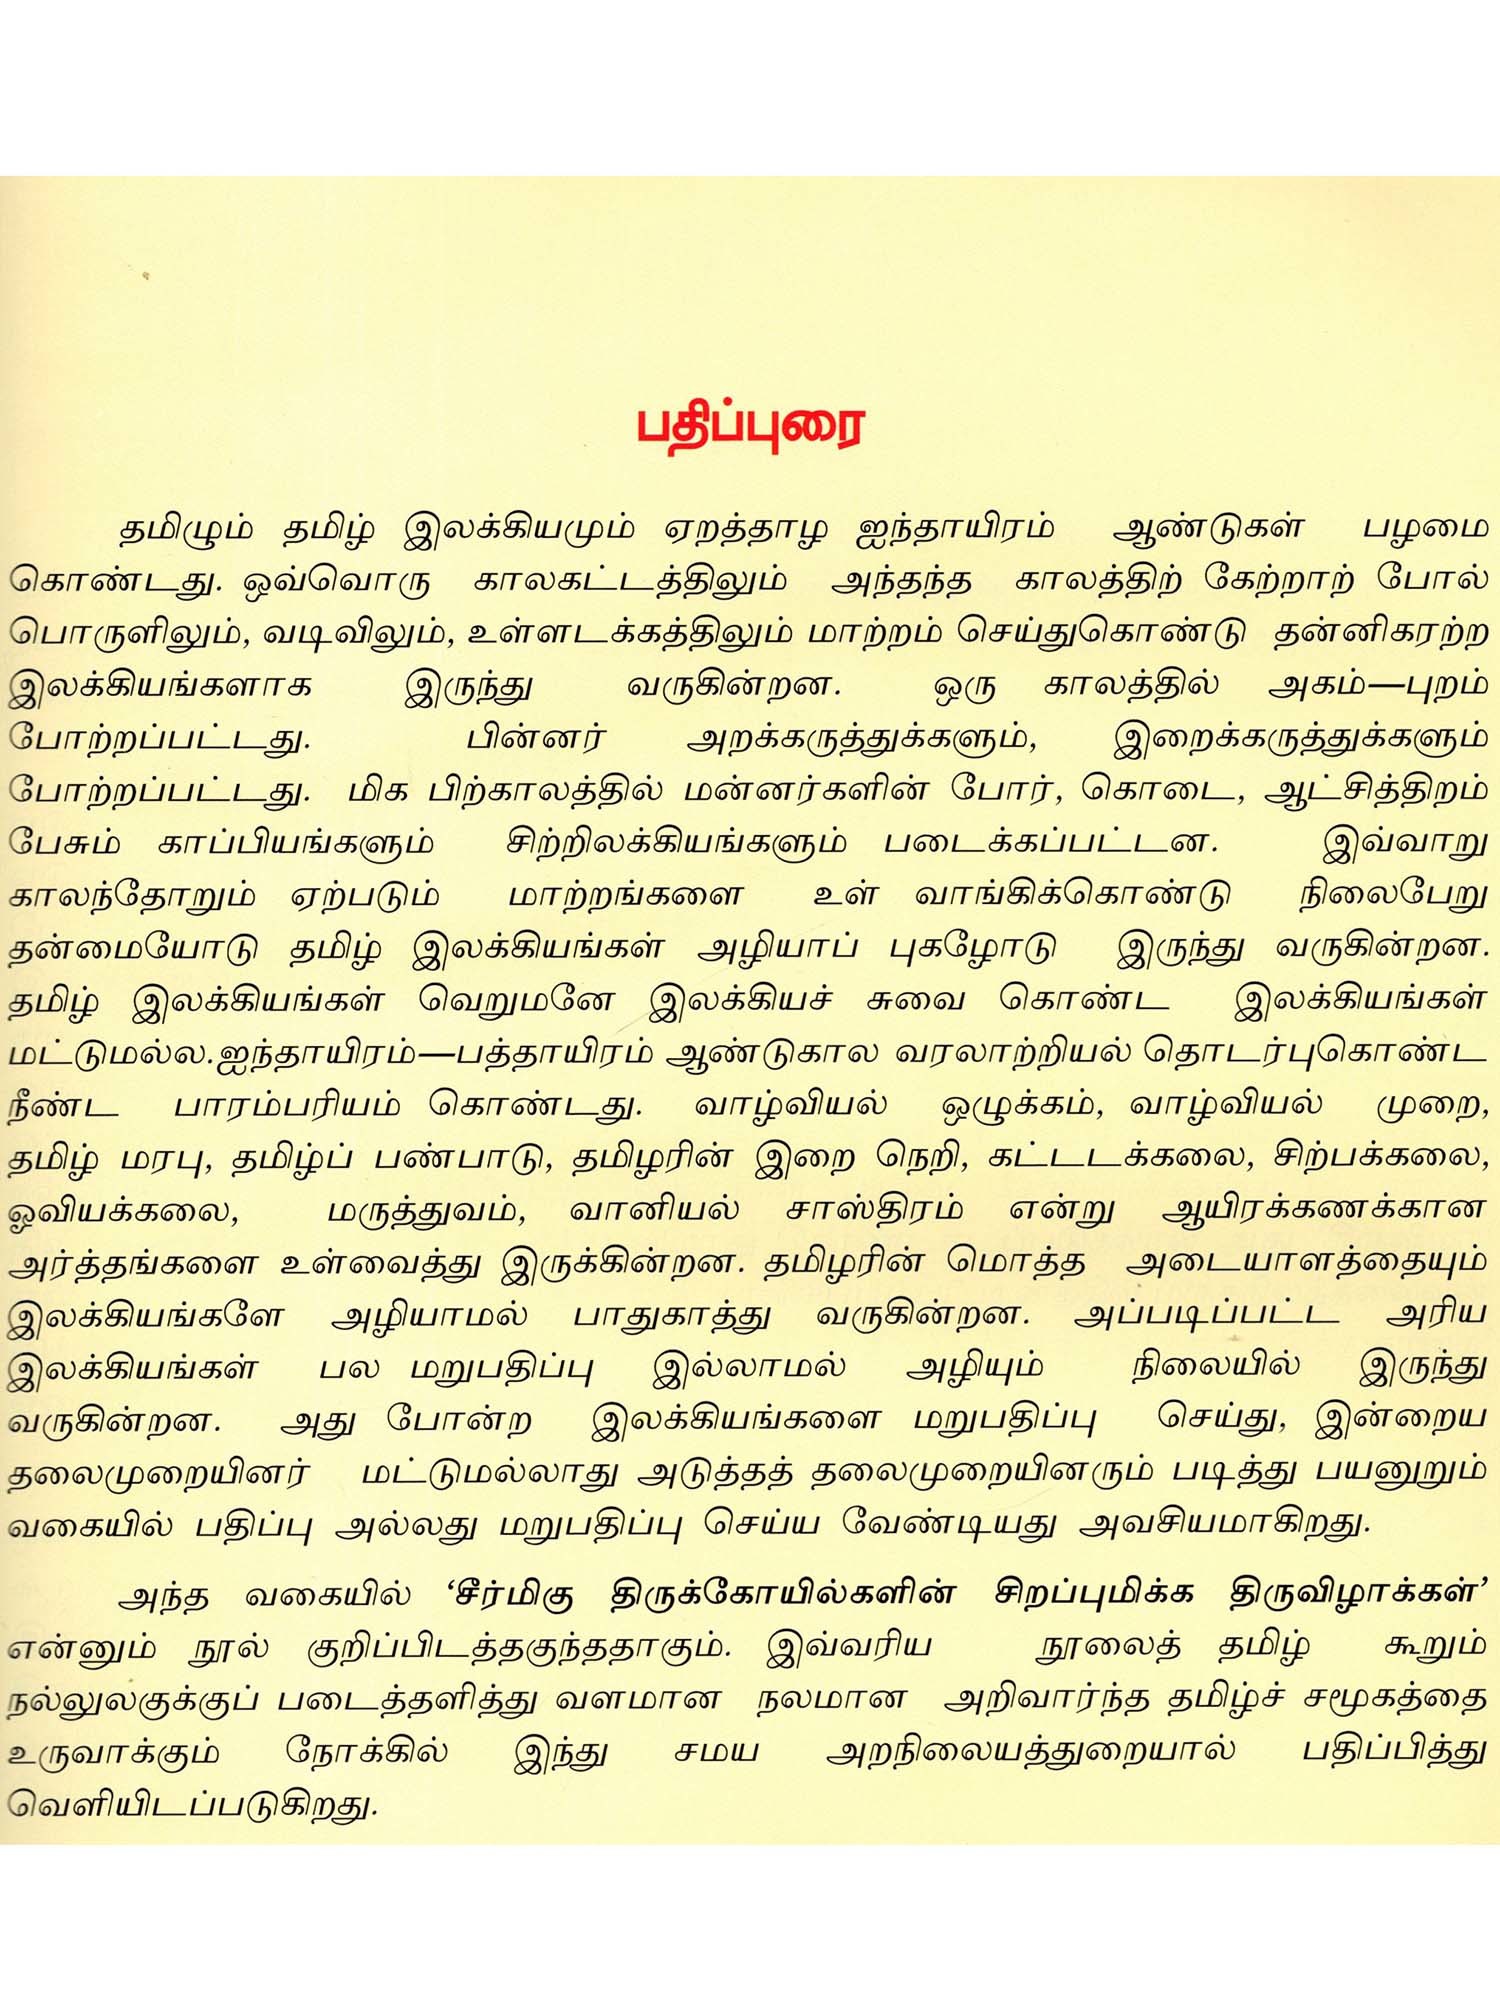 பதிப்புரை
தமிழும் தமிழ் இலக்கியமும் ஏறத்தாழ ஐந்தாயிரம் ஆண்டுகள் பழமை
கொண்டது. ஒவ்வொரு காலகட்டத்திலும் அந்தந்த காலத்திற் கேற்றாற் போல்
பொருளிலும், வடிவிலும், உள்ளடக்கத்திலும் மாற்றம் செய்துகொண்டு தன்னிகரற்ற
இலக்கியங்களாக இருந்து வருகின்றன. ஒரு காலத்தில் அகம்—புறம்
போற்றப்பட்டது. பின்னர் அறக்கருத்துக்களும், இறைக்கருத்துக்களும்
போற்றப்பட்டது. மிக பிற்காலத்தில் மன்னர்களின் போர், கொடை, ஆட்சித்திறம்
பேசும் காப்பியங்களும் சிற்றிலக்கியங்களும் படைக்கப்பட்டன. இவ்வாறு
காலந்தோறும் ஏற்படும் மாற்றங்களை உள் வாங்கிக்கொண்டு நிலைபேறு
தன்மையோடு தமிழ் இலக்கியங்கள் அழியாப் புகழோடு இருந்து வருகின்றன.
தமிழ் இலக்கியங்கள் வெறுமனே இலக்கியச் சுவை கொண்ட இலக்கியங்கள்
மட்டுமல்ல.ஐந்தாயிரம்—பத்தாயிரம் ஆண்டுகால வரலாற்றியல் தொடர்புகொண்ட
நீண்ட பாரம்பரியம் கொண்டது. வாழ்வியல் ஒழுக்கம், வாழ்வியல் முறை,
தமிழ் மரபு, தமிழ்ப் பண்பாடு, தமிழரின் இறை நெறி, கட்டடக்கலை, சிற்பக்கலை,
ஓவியக்கலை, மருத்துவம், வானியல் சாஸ்திரம் என்று ஆயிரக்கணக்கான
அர்த்தங்களை உள்வைத்து இருக்கின்றன. தமிழரின் மொத்த அடையாளத்தையும்
இலக்கியங்களே அழியாமல் பாதுகாத்து வருகின்றன. அப்படிப்பட்ட அரிய
இலக்கியங்கள் பல மறுபதிப்பு இல்லாமல் அழியும் நிலையில் இருந்து
வருகின்றன. அது போன்ற இலக்கியங்களை மறுபதிப்பு செய்து, இன்றைய
தலைமுறையினர் மட்டுமல்லாது அடுத்தத் தலைமுறையினரும் படித்து பயனுறும்
வகையில் பதிப்பு அல்லது மறுபதிப்பு செய்ய வேண்டியது அவசியமாகிறது.
அந்த வகையில் ‘சீர்மிகு திருக்கோயில்களின் சிறப்புமிக்க திருவிழாக்கள்’
என்னும் நூல் குறிப்பிடத்தகுந்ததாகும். இவ்வரிய நூலைத் தமிழ் கூறும்
நல்லுலகுக்குப் படைத்தளித்து வளமான நலமான அறிவார்ந்த தமிழ்ச் சமூகத்தை
உருவாக்கும் நோக்கில் இந்து சமய அறநிலையத்துறையால் பதிப்பித்து
வெளியிடப்படுகிறது.